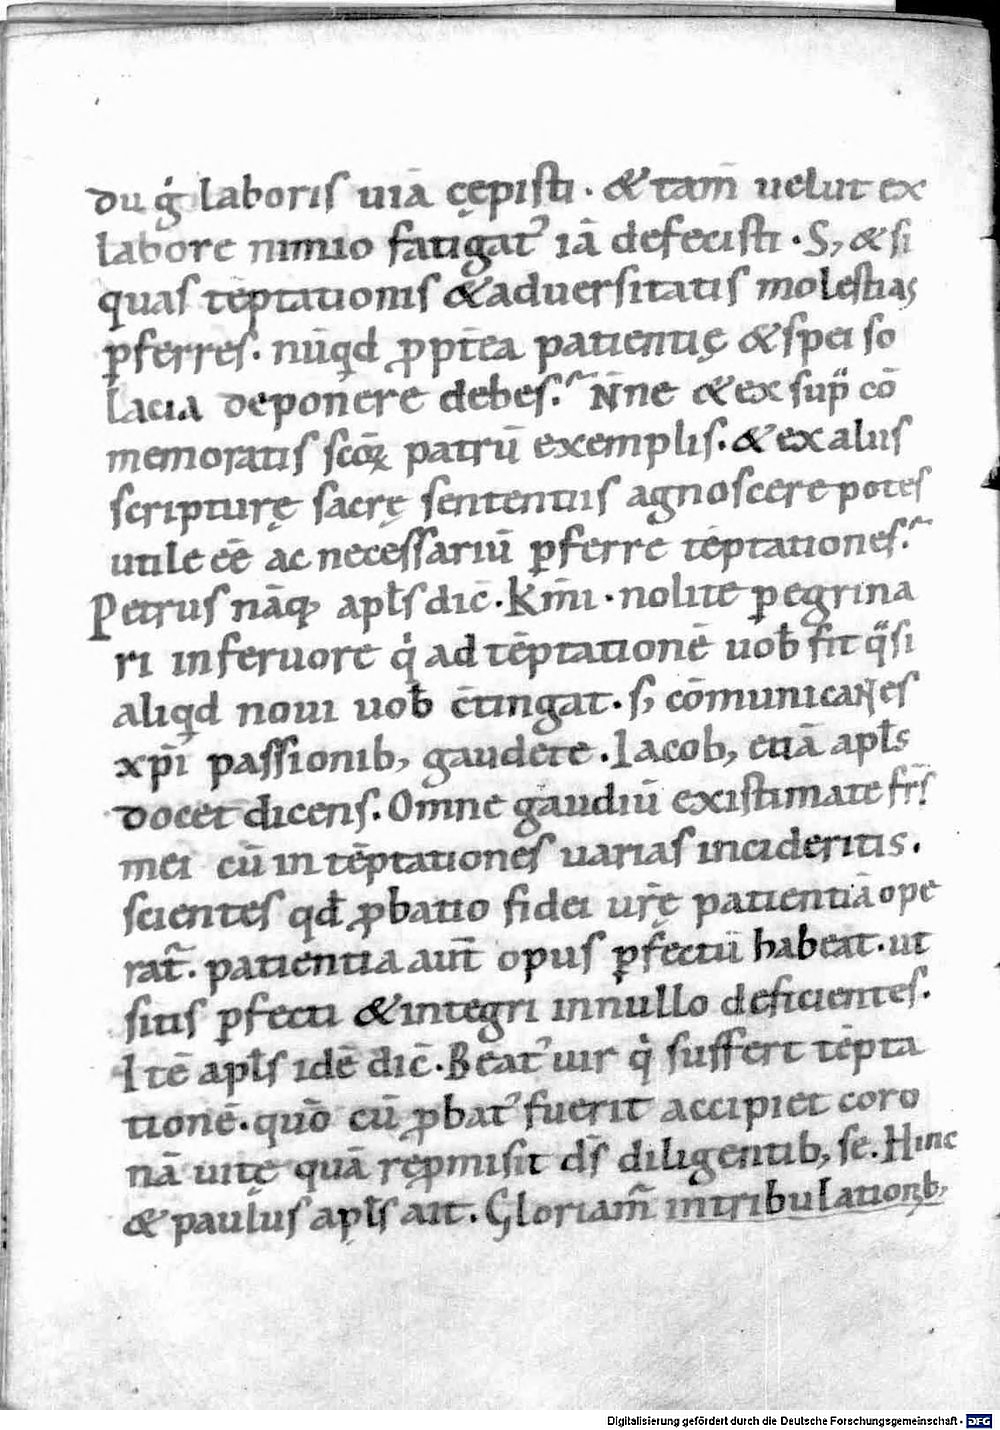 du g̍ laboris uiā cępisti · & tam̄ uelut ex
labore nimio fatigatꝰ iā defecisti · S; & si
quas tēptationis & aduersitatis molestias
ꝑferres. nūqd ꝓpt̄ea patientię & spei so
lacia deponere debes. N̄ne & ex sup̄ cō
memoratis scōꝝ patrū exemplis. & ex aliis
scripturę sacrę sententiis agnoscere potes
utile eē ac necessariū ꝑferre tēptationes.
Petrus nāq; apl̄s dic̄. Km̄i · nolite peregrina
ri in feruore q̍ ad tēptationē uob̄ fit q̈si
aliqd noui uob̄ c̄tingat. s; cōmunicantes
xp̄i passionib; gaudete. Iacob; etiā apl̄s
docet dicens. Omne gaudiū existimate fr̄s
mei cū in tēptationes uarias incideritis.
scientes qd̄ ꝓbatio fidei ur̄ę patientiā ope
rat̄. patientia aut̄ opus ꝑfectū habeat. ut
sitis ꝑfecti & integri in nullo deficientes.
Itē apl̄s idē dic̄. Beatꝰ uir q̍ suffert tēpta
tionē. quō cū ꝓbatꝰ fuerit accipiet coro
nā uitę quā reꝓmisit ds̄ diligentib; se. Hinc
& paulus apl̄s ait. Gloriam̄ in tribulationib;
Digitalisierung gefördert durch die Deutsche Forschungsgemeinschaft - DFG